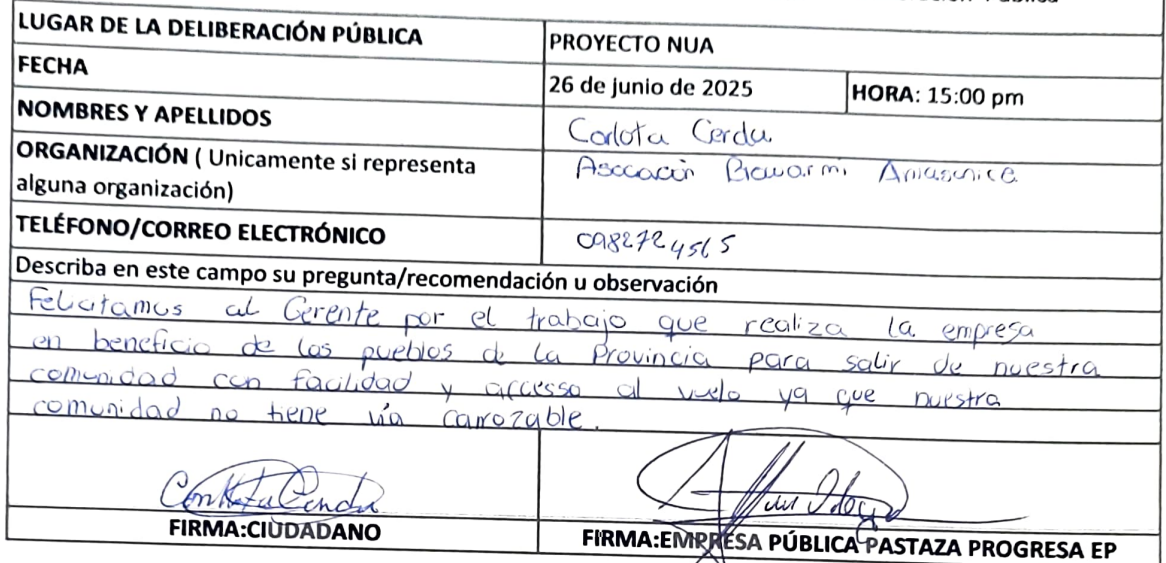 Pública
LUGAR DE LA DELIBERACIÓN PÚBLICA PROYECTO NUA
FECHA 26 de junio de 2025 HORA: 15:00 pm
NOMBRES Y APELLIDOS Carlota Cerda
ORGANIZACIÓN ( Unicamente si representa
alguna organización)
TELÉFONO/CORREO ELECTRÓNICO
Describa en este campo su pregunta/recomendación u observación
Felicitamos al Gerente por el trabajo que realiza la empresa
en beneficio de los pueblos de la Provincia para salir de nuestra
comunidad con facilidad y accesso al vuelo ya que nuestra
comunidad no tiene vía carrozable.
FIRMA:CIUDADANO
FIRMA:EMPRESA PÚBLICA PASTAZA PROGRESA EP